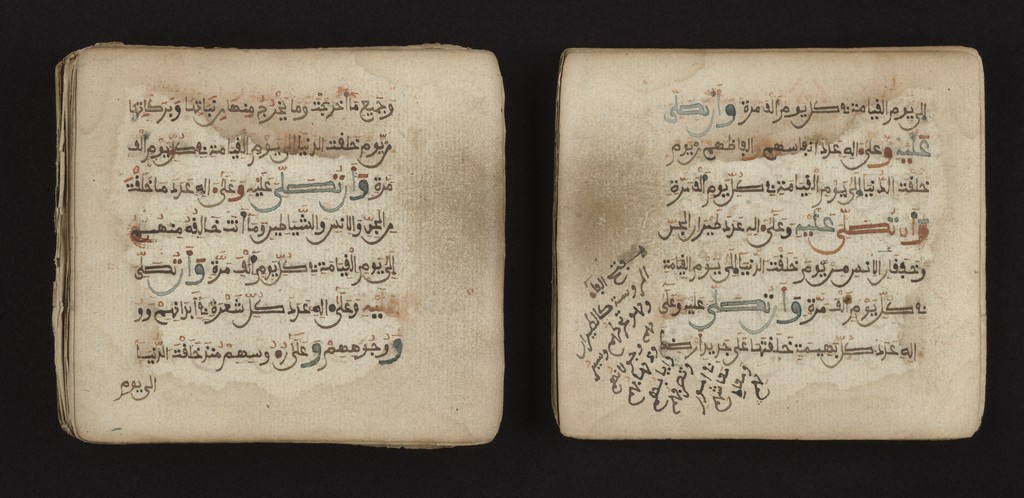 وجميع ما أخرجت وما يخرج منها من نباتها وبركاتها
من يوم خلقت الدنيا الى يوم القيامة في كل يوم الف
مرة وأن تصلي عليه وعلى اله عدد ما خلقت
من الجن والانس والشياطين وما أنت خالقه منهم
الى يوم القيامة في كل يوم ألف مرة وأن تصلي
عليه وعلى اله عدد كل شعرة في أبدانهم وو
ووجوههم وعلى رءوسهم منذ خلقت الدنيا
الى يوم
الى يوم القيامة في كل يوم الف مرة وأن تصلي
عليه وعلى اله عدد انفاسهم الفاظهم من يوم
خلقت الدنيا الى يوم القيامة في كل يوم الف مرة
وأن تصلي عليه وعلى اله عدد طيران الجن
وخفقان الانس من يوم خلقت الدنيا الى يوم القيامة
في كل يوم الف مرة وأن تصلي عليه وعلى
اله عدد كل بهيمة خلقتها على جديد
بفتح الفاء
كالطيران